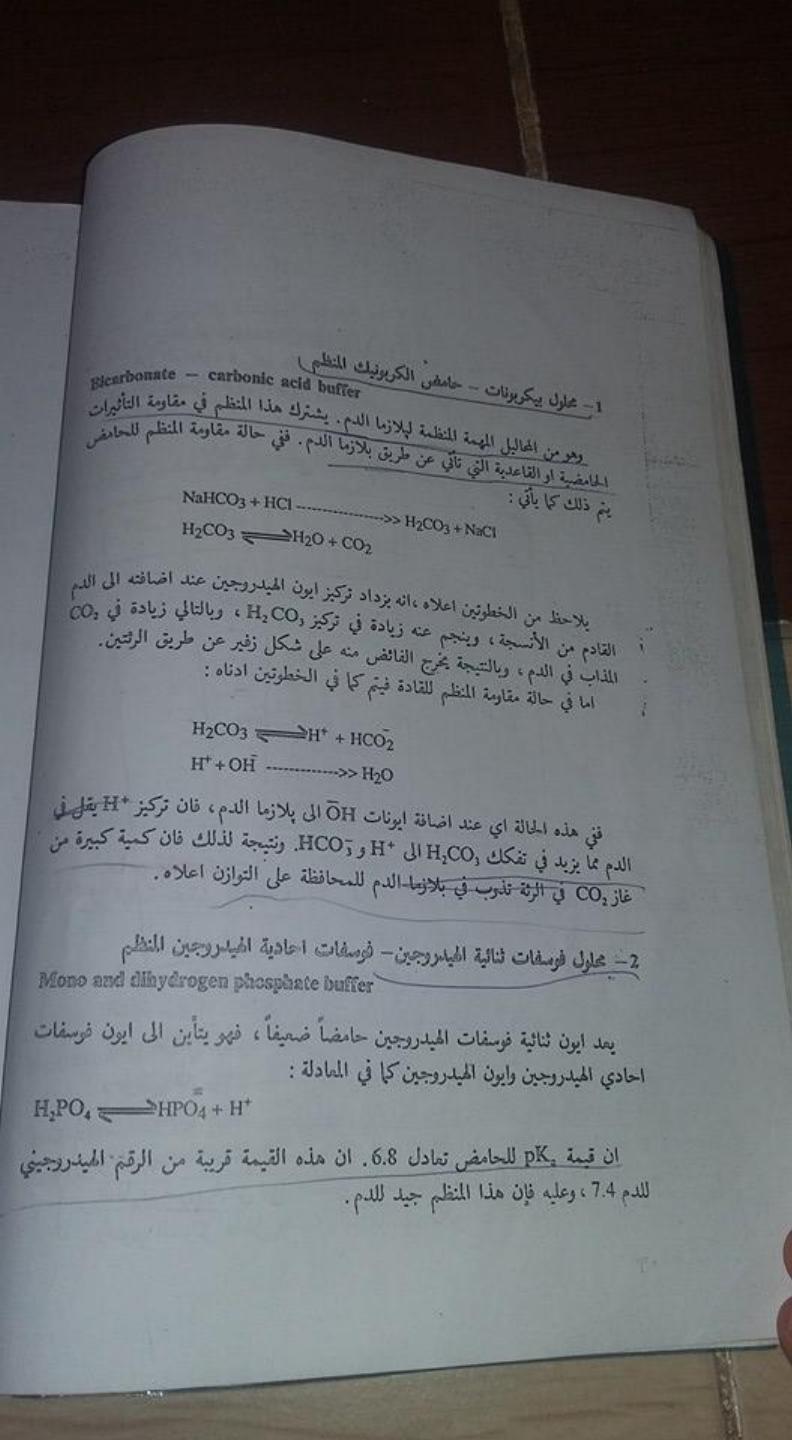 1- محلول بيكربونات - حامض الكربونيك المنظم
Bicarbonate - carbonic acid buffer
وهو من المحاليل المهمة المنظمة لپلازما الدم. يشترك هذا المنظم في مقاومة التأثيرات
الحامضية او القاعدية التي تأتي عن طريق بلازما الدم. ففي حالة مقاومة المنظم للحامض
يتم ذلك كما يأتي :
NaHCO₃ + HCl ------------->> H₂CO₃ + NaCl
H₂CO₃ ⇌ H₂O + CO₂
يلاحظ من الخطوتين اعلاه ، انه يزداد تركيز ايون الهيدروجين عند اضافته الى الدم
القادم من الأنسجة ، وينجم عنه زيادة في تركيز H₂CO₃ ، وبالتالي زيادة في CO₂
المذاب في الدم ، وبالنتيجة يخرج الفائض منه على شكل زفير عن طريق الرئتين.
اما في حالة مقاومة المنظم للقادة فيتم كما في الخطوتين ادناه :
H₂CO₃ ⇌ H⁺ + HCO₂⁻
H⁺ + OH⁻ ------------->> H₂O
ففي هذه الحالة اي عند اضافة ايونات OH⁻ الى پلازما الدم ، فان تركيز H⁺ يقل في
الدم مما يزيد في تفكك H₂CO₃ الى H⁺ و HCO₃⁻. ونتيجة لذلك فان كمية كبيرة من
غاز CO₂ في الرئة تذوب في بلازما الدم للمحافظة على التوازن اعلاه .
2- محلول فوسفات ثنائية الهيدروجين - فوسفات احادية الهيدروجين المنظم
Mono and dihydrogen phosphate buffer
يعد ايون ثنائية فوسفات الهيدروجين حامضاً ضعيفاً ، فهو يتأين الى ايون فوسفات
احادي الهيدروجين وايون الهيدروجين كما في المعادلة :
H₂PO₄ ⇌ HPO₄⁼ + H⁺
ان قيمة pK₂ للحامض تعادل 6.8 . ان هذه القيمة قريبة من الرقم الهيدروجيني
للدم 7.4 ، وعليه فإن هذا المنظم جيد للدم .